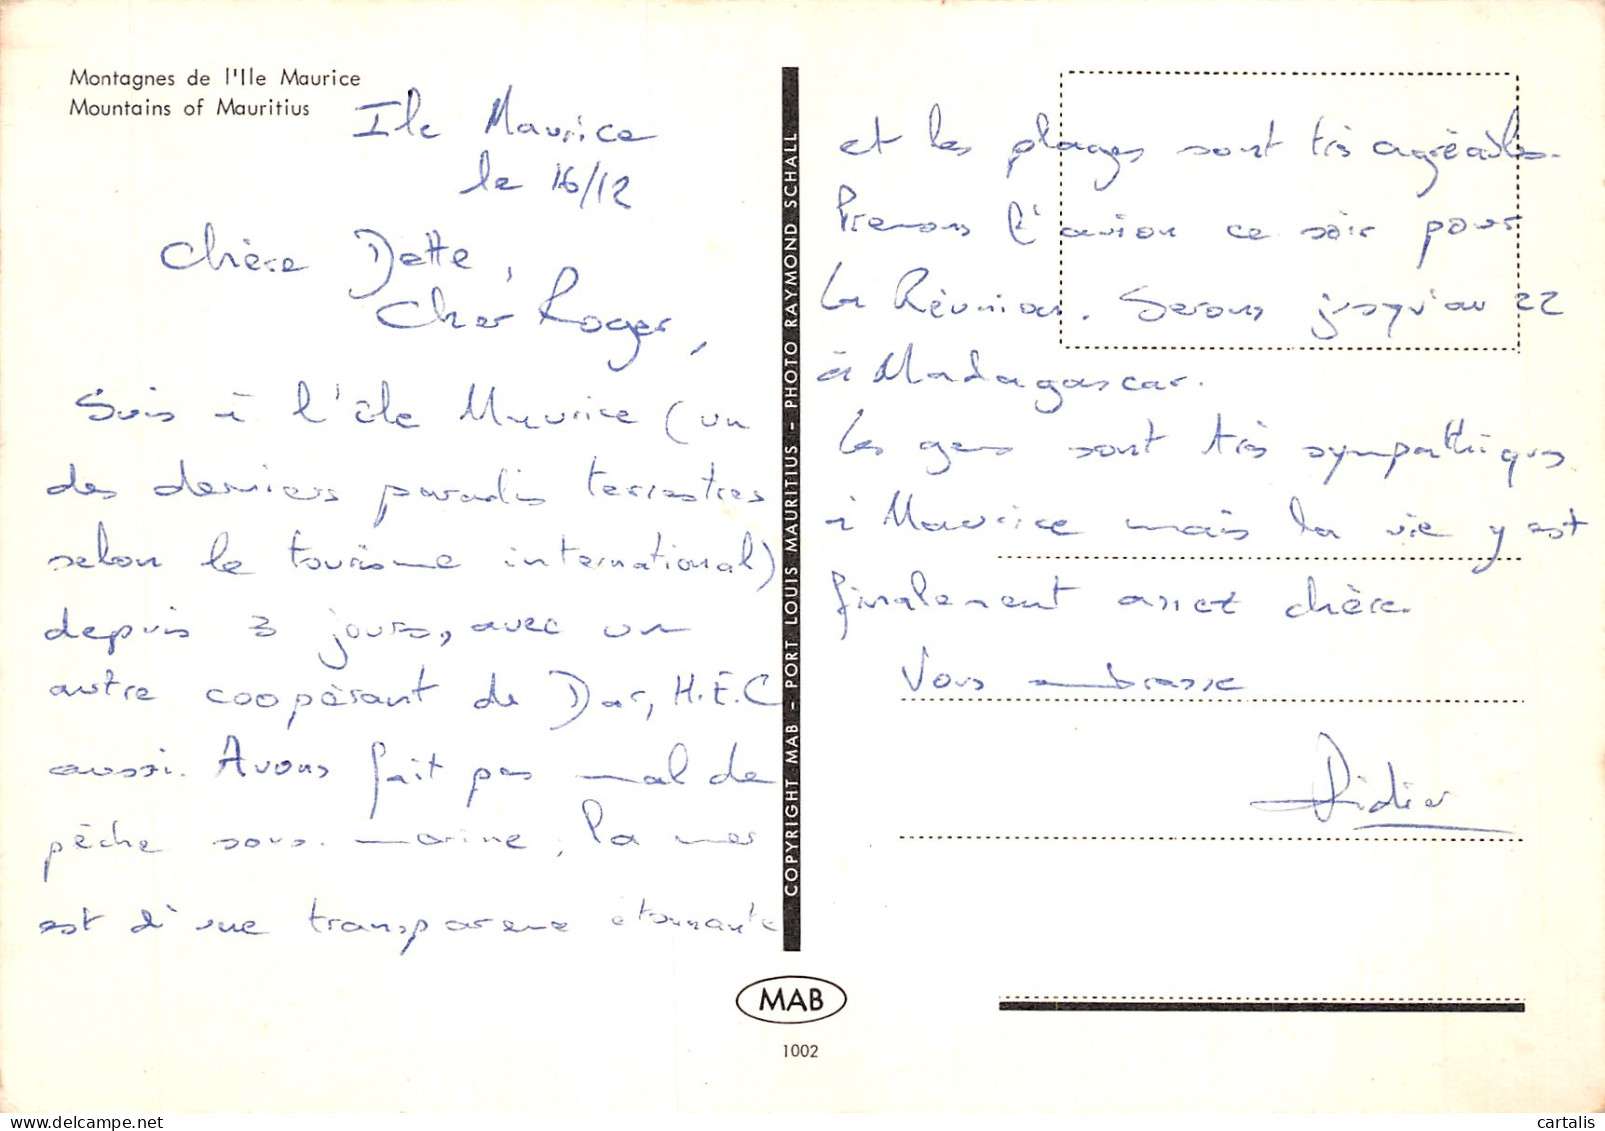 Montagnes de l'Ile Maurice
Mountains of Mauritius
Ile Maurice
le 16/12
Chère Dette,
Cher Roger,
Suis à l'île Maurice (un
des derniers paradis terrestres
selon le tourisme international)
depuis 3 jours, avec un
autre coopérant de Dar, H.E.C
aussi. Avons fait pas mal de
pêche sous-marine, la mer
est d'une transparence étonnante
et les plages sont très agréables.
Prenons l'avion ce soir pour
la Réunion. Serons jusqu'au 22
à Madagascar.
Les gens sont très sympathiques
à Maurice mais la vie y est
finalement assez chère.
Vous embrasse
Didier
COPYRIGHT MAB - PORT LOUIS MAURITIUS - PHOTO RAYMOND SCHALL
MAB
1002
cartalis